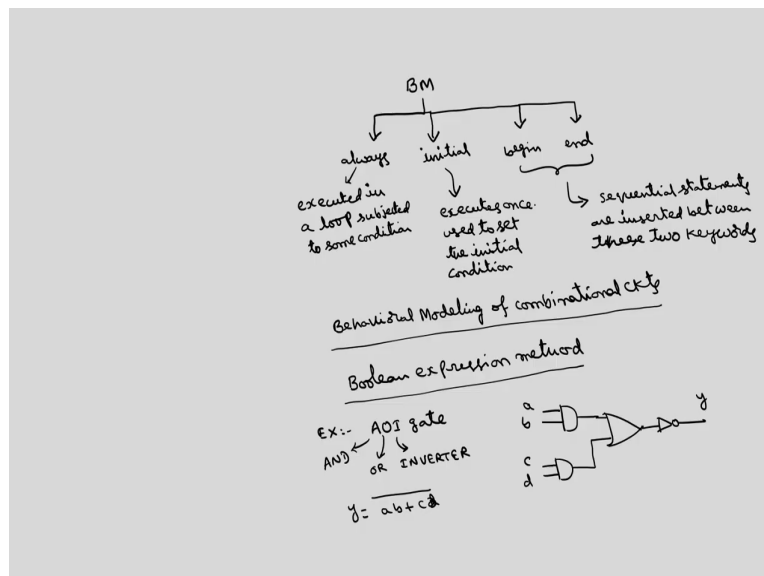 BM
always initial begin end
executed in
a loop subjected
to some condition
executes once.
used to set
the initial
condition
sequential statements
are inserted between
these two keywords
Behavioral Modeling of combinational CKTs
Boolean expression method
EX:- AOI gate
AND OR INVERTER
y = \overline{ab+cd}
a
b
c
d
y